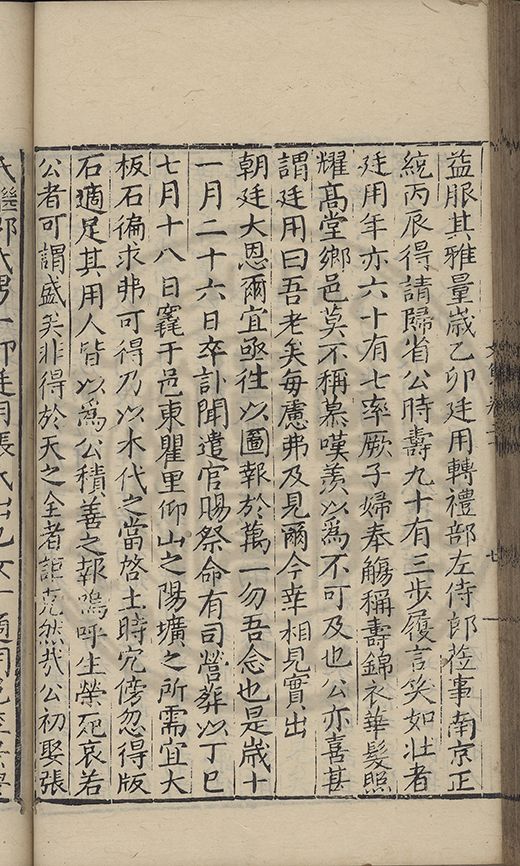 益服其雅量歲乙卯廷用轉禮部左侍郎蒞事南京正
統丙辰得請歸省公時壽九十有三步履言笑如壯者
廷用年亦六十有七率厥子婦奉觴稱壽錦衣華髮照
耀髙堂鄉邑莫不稱慕嘆羡以爲不可及也公亦喜甚
謂廷用曰吾老矣每慮弗及見爾今幸相見實出
朝廷大恩爾宜亟徃以圖報於萬一勿吾念也是歲十
一月二十六日卒訃聞遣官賜祭命有司營葬以丁巳
七月十八日窆于邑東瞿里仰山之陽壙之所需宜大
板石徧求弗可得乃以木代之當啓土時穴傍忽得版
石適足其用人皆以爲公積善之報嗚呼生榮死哀若
公者可謂盛矣非得於天之全者詎克然㢤公初娶張